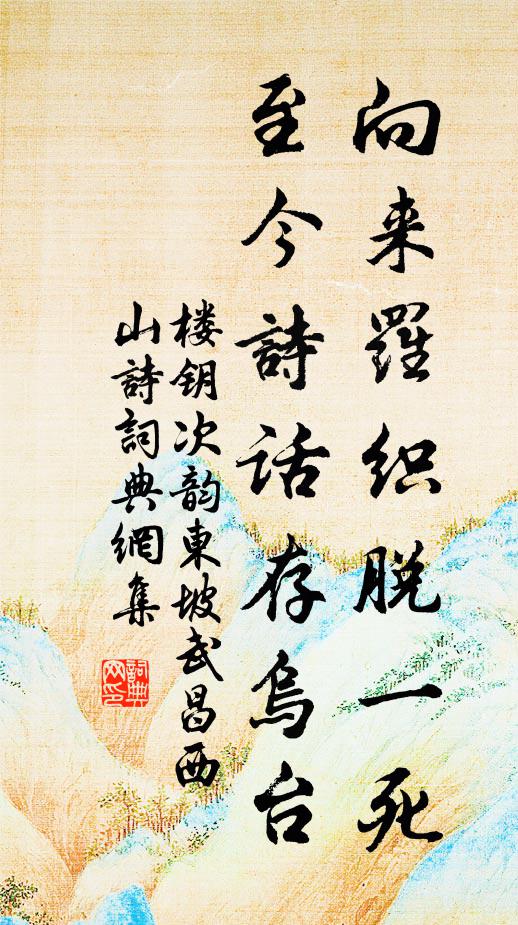 向来羅织脱一死
至今詩话存烏台
楼钥次韵東坡武昌西
山詩詞典網集